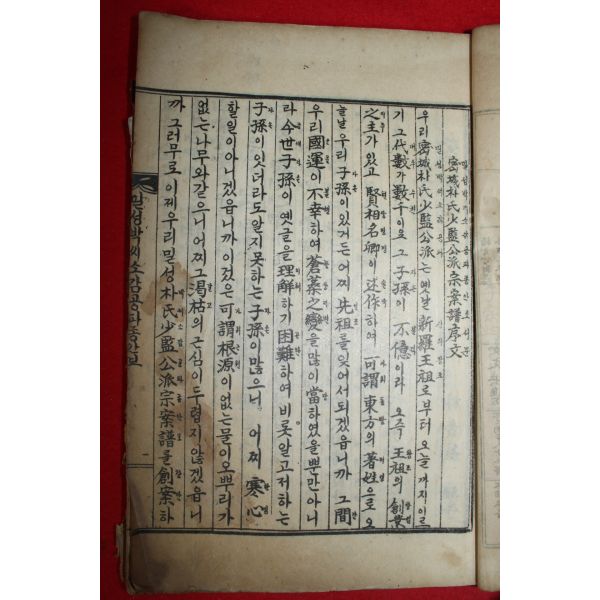 密城朴氏少監公派宗案譜序文
밀성박씨소감공파종안보서문
우리密城朴氏少監公派는옛날新羅王祖로부터오늘까지이르
기그代數가數千이요그子孫이不億이라오즉王祖의創業
之主가있고賢相名卿이述作하여可謂東方의著姓으로오
늘날우리子孫이있거든어찌先祖를잊어서되겠읍니까그間
우리國運이不幸하여蒼桑之變을많이當하였을뿐만아니
라今世子孫이옛글을理解하기困難하여비롯알고저하는
子孫이잇더라도알지못하는子孫이많으니어찌寒心
할일이아니겠읍니까이것은可謂根源이없는물이오뿌리가
없는나무와같은니어찌그渴枯의근심이두렵지않겠읍니
까그러무로이제우리밀성朴氏少監公派宗案譜를創案하
밀성박씨소감공파종안보